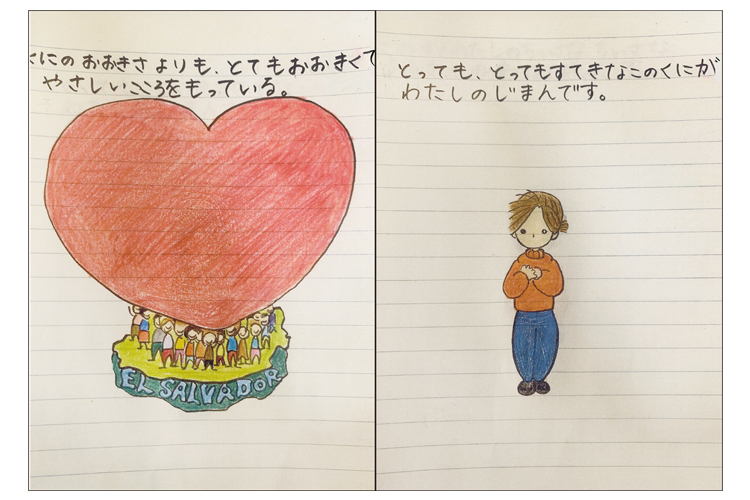 くにの おおきさ よりも、とてもおおきくて
やさしいこころをもっている。
EL SALVADOR
とっても、とってもすてきなこのくにが
わたしのじまんです。